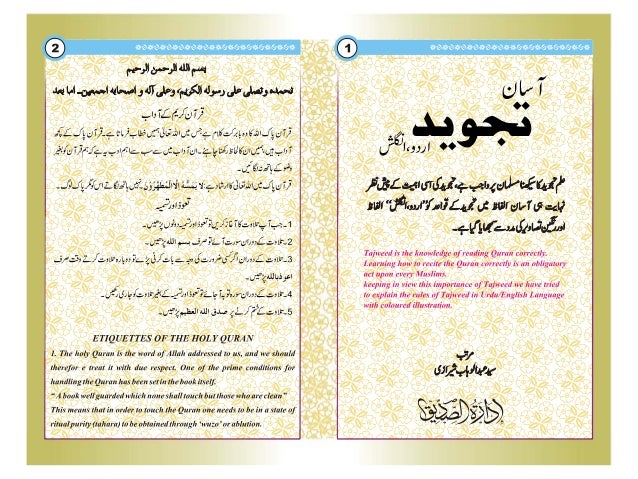 1
آسان
تجوید
اردو، انگلش
علم تجوید کا سیکھنا مسلمان پر واجب ہے، تجوید کی اسی اہمیت کے پیش نظر
نہایت ہی آسان الفاظ میں تجوید کے قواعد کو "اردو، انگلش" الفاظ
اور رنگین تصاویر کی مدد سے سمجھایا گیا ہے۔
Tajweed is the knowledge of reading Quran correctly.
Learning how to recite the Quran correctly is an obligatory
act upon every Muslims.
keeping in view this importance of Tajweed we have tried
to explain the rules of Tajweed in Urdu/English Language
with coloured illustration.
مرتب
سید عبدالوہاب شیرازی
ادارۃ الصدیق
2
بسم الله الرحمن الرحیم
نحمدہ ونصلی علی رسوله الکریم، وعلی آله و اصحابه اجمعین۔ اما بعد
قرآن کریم کے آداب
قرآن پاک اللہ کا وہ بابرکت کلام ہے جس میں اللہ تعالیٰ ہمیں خطاب فرماتا ہے۔ قرآن پاک کے
کچھ آداب ہیں، ہمیں ان کا لحاظ رکھنا چاہئے۔ ان آداب میں سے سب سے اہم ادب یہ ہے کہ ہم قرآن کو بغیر
وضو کے ہاتھ نہ لگائیں۔
قرآن پاک میں اللہ تعالیٰ کا ارشاد ہے: لَا يَمَسُّهُ إِلَّا الْمُطَهَّرُوْنَ نہیں ہاتھ لگاتے اس کو مگر پاک لوگ۔
تعوذ اور تسمیہ
1۔ جب آپ تلاوت کا آغاز کریں تو تعوذ اور تسمیہ دونوں پڑھیں۔
2۔ تلاوت کے دوران سورت آئے تو صرف بسم الله پڑھیں۔
3۔ تلاوت کے دوران اگر کسی ضرورت کی وجہ سے بات کرنی پڑے تو دوبارہ تلاوت کرتے وقت صرف
اعوذ بالله پڑھیں۔
4۔ تلاوت کے دوران سورہ توبہ آ جائے تو تعوذ اور تسمیہ کے بغیر تلاوت کو جاری رکھیں۔
5۔ تلاوت کے ختم کرنے پر صدق الله العظیم پڑھیں۔
ETIQUETTES OF THE HOLY QURAN
1. The holy Quran is the word of Allah addressed to us, and we should
therefor e treat it with due respect. One of the prime conditions for
handling the Quran has been set in the book itself.
“ A book well guarded which none shall touch but those who are clean”
This means that in order to touch the Quran one needs to be in a state of
ritual purity (tahara) to be obtained through ‘wuzo’ or ablution.